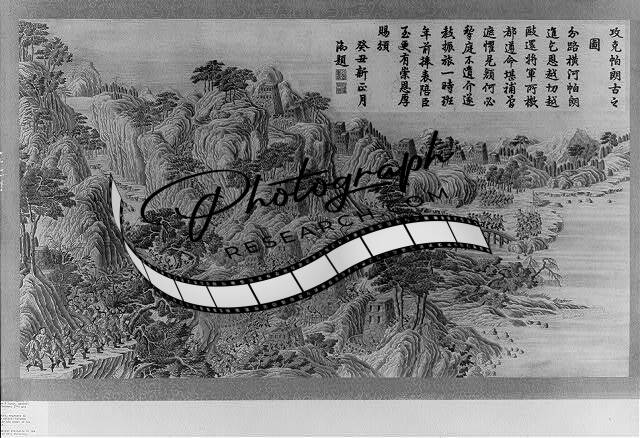 攻克帕朗古之
圖
分路橫河帕朗
進乞恩越切越
還將軍所檄
都遵命堪補
遮懼見顏何必
犂庭不遺介遂
教振旅一時班
年前捧表陪臣
至更有崇恩厚
賜頒
癸丑新正月
御題
Photograph
RESEARCH.COM